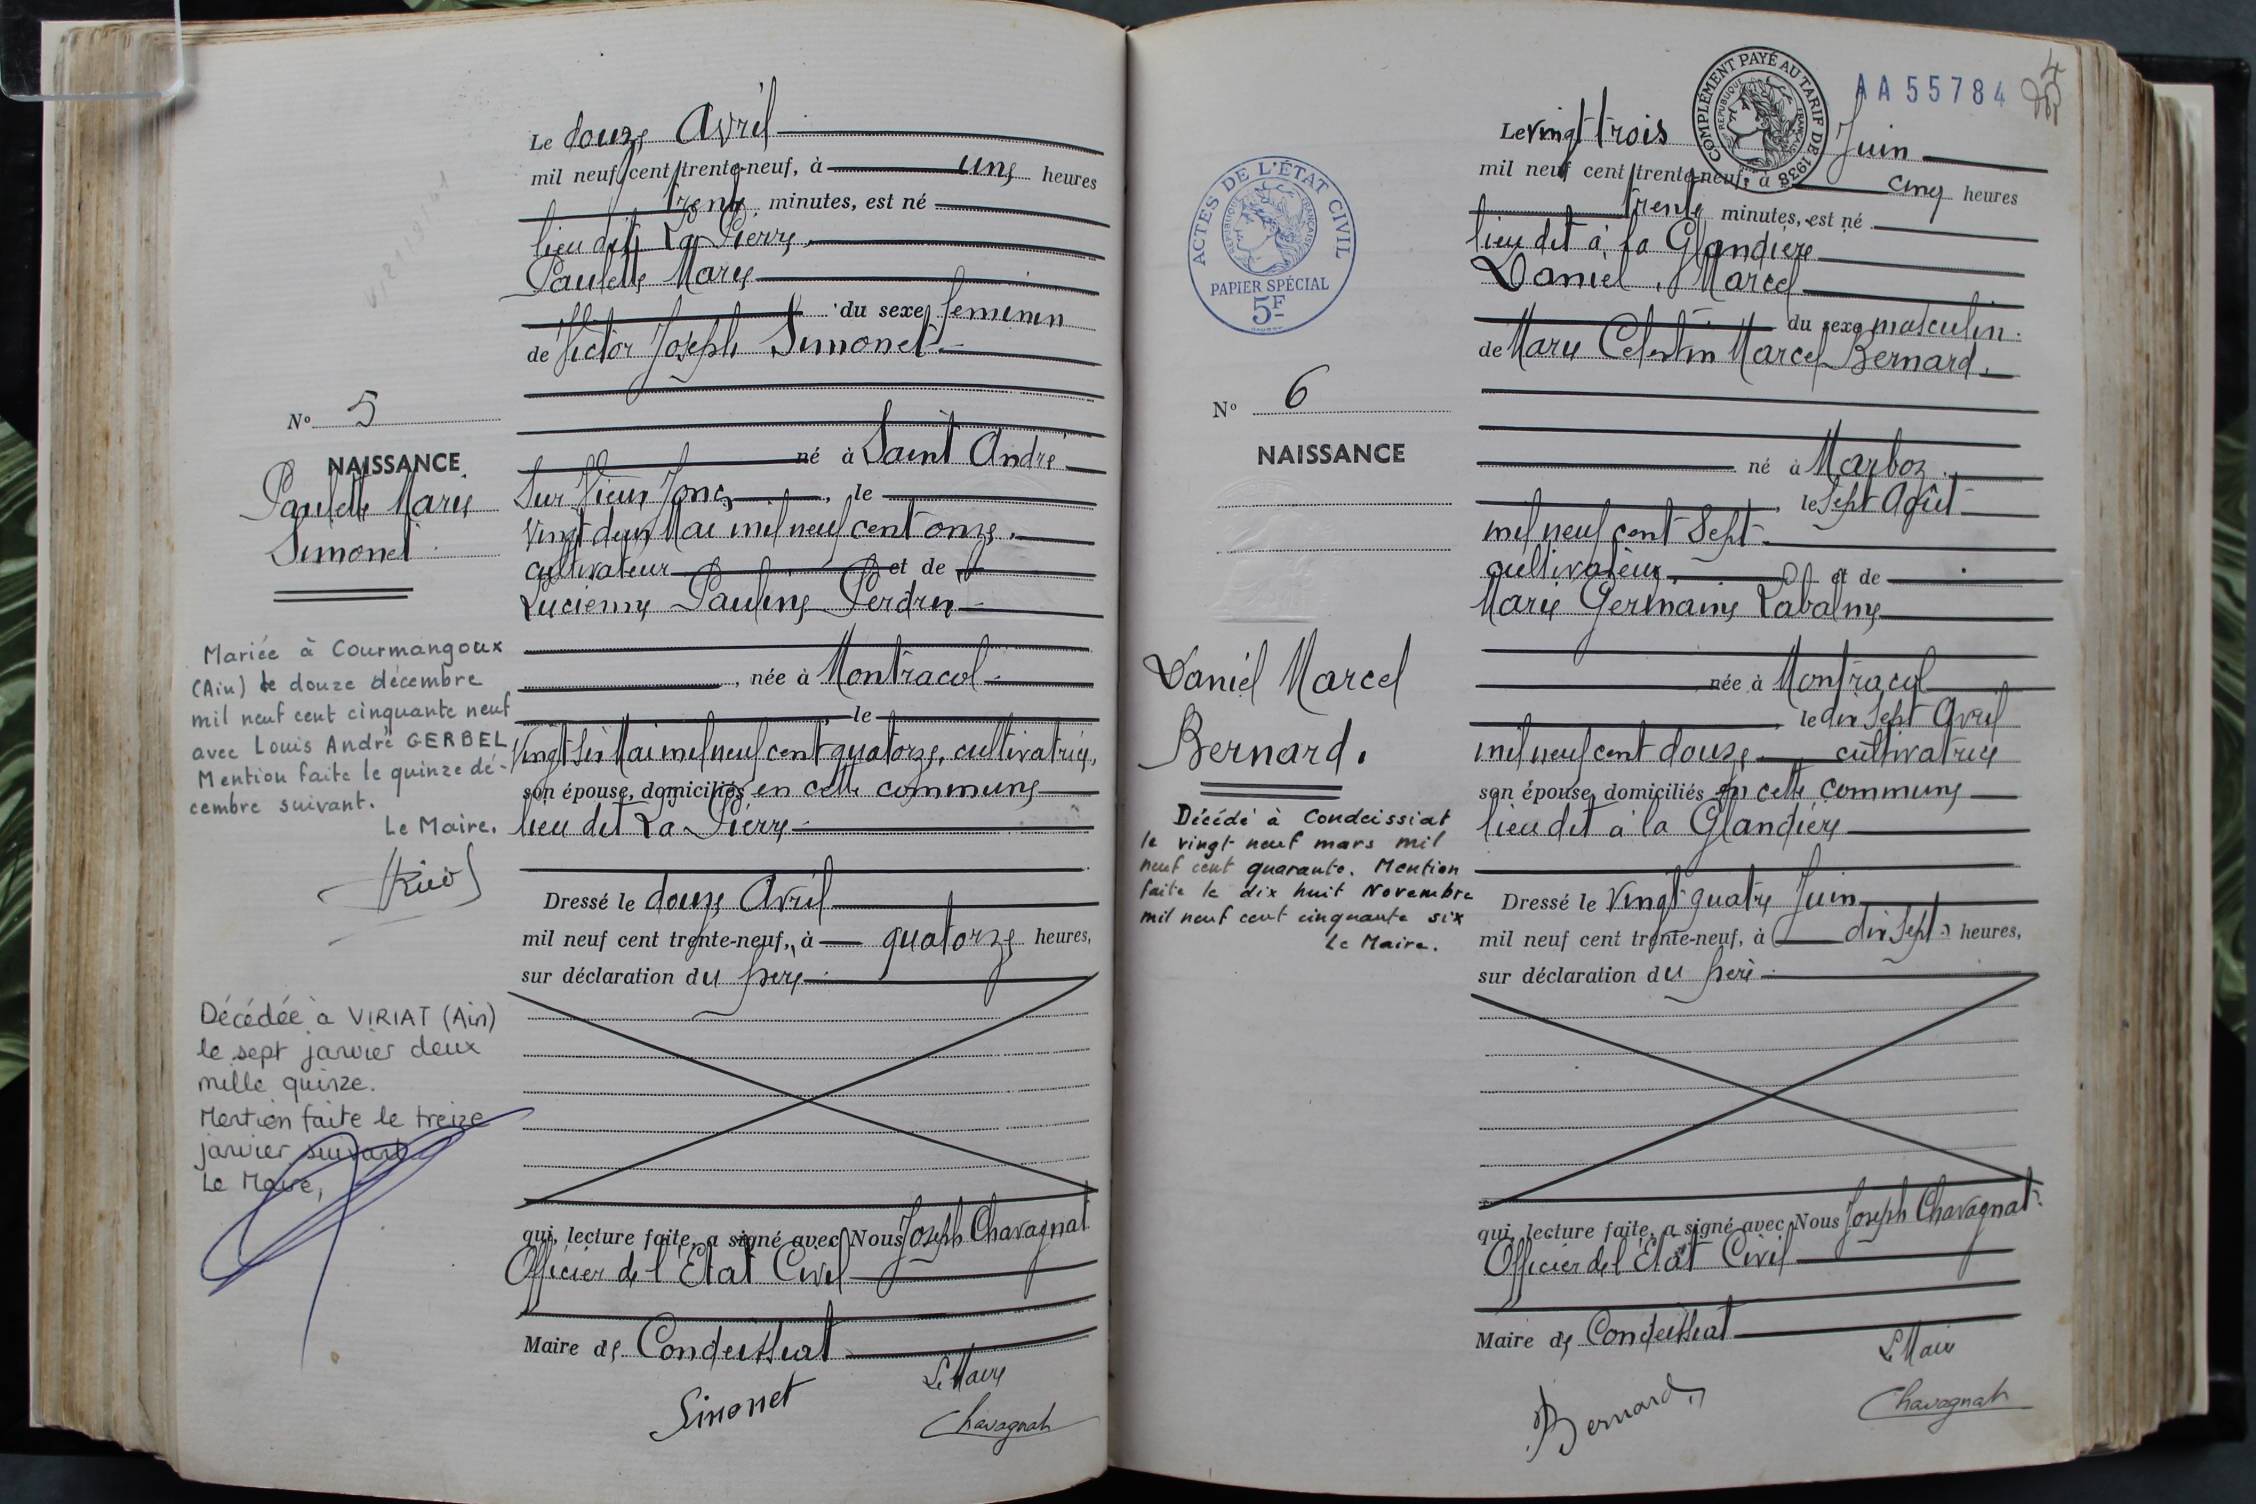 Le douze Avril
mil neuf cent trente-neuf, à une heures
trente minutes, est né
lieu dit La Pierre
Paulette Marie
du sexe féminin
de Victor Joseph Simonet
né à Saint André
Sur Vieux Jonc, le
vingt deux Mai mil neuf cent onze,
cultivateur et de
Lucienne Pauline Perdrix
née à Montracol
le
Vingt Six Mai mil neuf cent quatorze, cultivatrice,
son épouse, domiciliés en cette commune
lieu dit La Pierre
Dressé le douze Avril
mil neuf cent trente-neuf, à quatorze heures,
sur déclaration du père
qui, lecture faite, a signé avec Nous Joseph Chavagnat
Officier de l'Etat Civil
Maire de Condeissiat
Le Maire
Simonet
Chavagnat
No 5
NAISSANCE
Paulette Marie
Simonet
Mariée à Courmangoux
(Ain) le douze décembre
mil neuf cent cinquante neuf
avec Louis André GERBEL
Mention faite le quinze dé-
cembre suivant.
Le Maire.
Décédée à VIRIAT (Ain)
le sept janvier deux
mille quinze.
Mention faite le treize
janvier suivant
Le Maire,
AA 55784
4
COMPLÉMENT PAYÉ AU TARIF DE 1938
RÉPUBLIQUE FRANÇAISE
Le vingt trois Juin
mil neuf cent trente-neuf, à cinq heures
trente minutes, est né
lieu dit à la Glandière
Daniel, Marcel
du sexe masculin.
de Marie Célestin Marcel Bernard,
né à Marboz
le sept Août
mil neuf cent Sept
cultivateur, et de
Marie Germaine Labalme
née à Montracol
le dix Sept Avril
mil neuf cent douze cultivatrice
son épouse, domiciliés en cette commune
lieu dit à la Glandière
Dressé le vingt quatre Juin
mil neuf cent trente-neuf, à dix Sept heures,
sur déclaration du père
qui, lecture faite, a signé avec Nous Joseph Chavagnat
Officier de l'Etat Civil
Maire de Condeissiat
Le Maire
Bernard
Chavagnat
ACTES DE L'ÉTAT CIVIL
RÉPUBLIQUE FRANÇAISE
PAPIER SPÉCIAL
5F
No 6
NAISSANCE
Daniel Marcel
Bernard.
Décédé à Condeissiat
le vingt neuf mars mil
neuf cent quarante. Mention
faite le dix huit Novembre
mil neuf cent cinquante six
Le Maire.